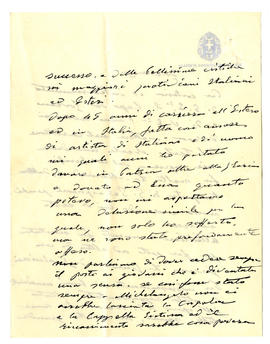 successo, e delle bellissime critiche
sui maggiori quotidiani Italiani
ed Esteri
Dopo 45 anni di carriera all'Estero
ed in Italia, fatta con amore
di artista di Italiano e di uomo
nei quali anni ho portato
danaro in Patria
e donato ad Essa quanto
potevo, non mi aspettavo
una delusione simile per la
quale, non solo ho sofferto,
ma ne sono stato profondamente
offeso.
Non parliamo di dover cedere sempre
il posto ai giovani che è diventata
una scusa. se così fosse stato
sempre, Michelangelo non ci
avrebbe lasciata la Cupola e
e la Cappella Sistina ed il
Rinascimento sarebbe cosa